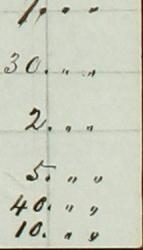 1. " "
30. " "
2. " "
5. " "
40. " "
10. " "